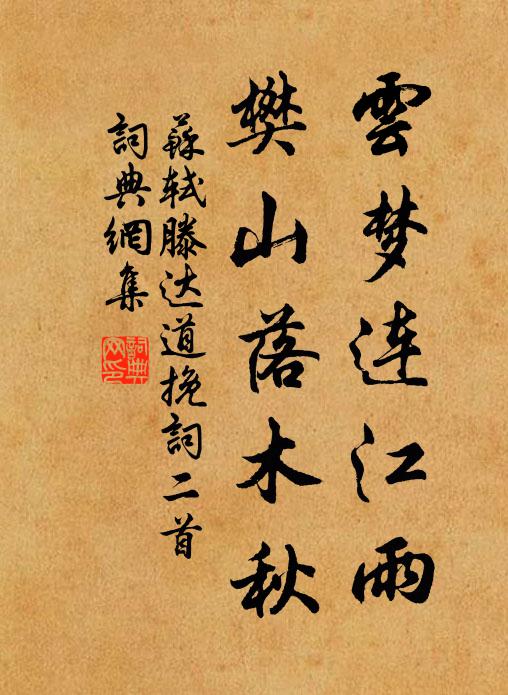 雲梦连江雨
樊山落木秋
蘇轼滕达道挽詞二首
詞典網集
詞典网印